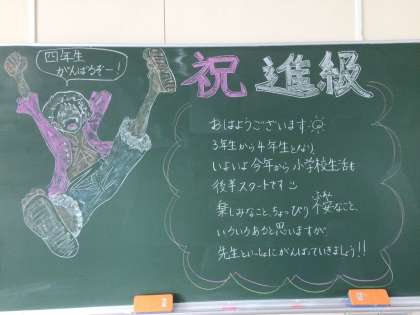 四年生
がんばるぞー!
祝 進級
おはようございます
3年生から4年生となり
いよいよ今年から小学校生活も
後半スタートです
楽しみなこと、ちょっぴり不安なこと、
いろいろあると思いますが
先生といっしょにがんばっていきましょう!!